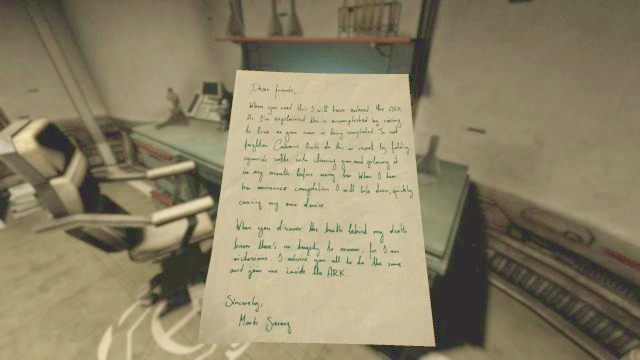 Dear friends,
When you read this I will have entered the ARK.
As I've explained this is accomplished by ceasing
to live as your scan is being completed. To not
frighten Catherine I will do this in secret by folding
cyanide salts into chewing gum and placing it
in my mouth before seeing her. When I hear
her announce completion I will bite down, quickly
causing my own demise.
When you discover the truth behind my death
know there's no tragedy to mourn, for I am
victorious. I advise you all to do the same
and join me inside the ARK.
Sincerely,
Mark Sarang